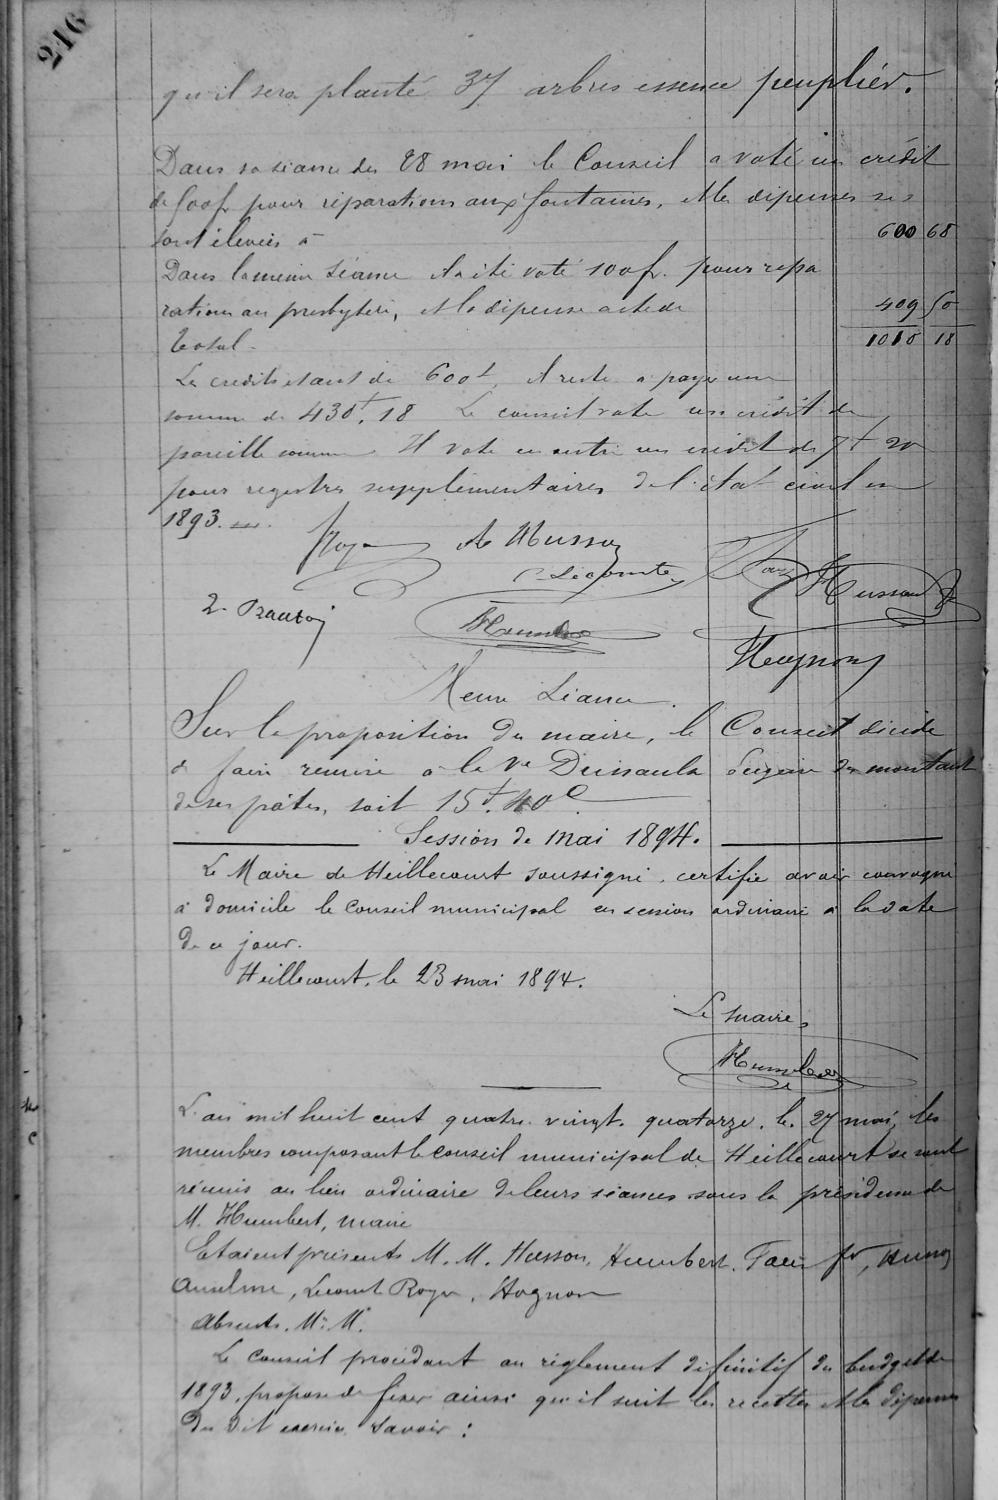 216
qu'il sera planté 37 arbres essence peuplier.
Dans sa séance du 28 mai le Conseil a voté un crédit
de 500f pour réparations aux fontaines, et les dépenses se
sont élevées à 600 68
Dans la même séance il a été voté 100f. pour répa
rations au presbytère, et la dépense a été de 409 50
Total 1010 18
Le crédit étant de 600f, il reste à payer une
somme de 430f.18 Le conseil vote un crédit de
pareille somme. Il vote en outre un crédit de 7f 20
pour registres supplémentaires de l'état civil en
1893.
Roger Ae Husson
Lecomte
Husson
Humbert
Hognon
Même Séance.
Sur la proposition du maire, le Conseil décide
de faire remise à la Ve du montant
de ses pâtes, soit 15f.40c
Session de mai 1894.
Le Maire de Heillecourt soussigné, certifie avoir convoqué
à domicile le Conseil municipal en session ordinaire à la date
de ce jour.
Heillecourt, le 23 mai 1894.
Le maire,
Humbert
L'an mil huit cent quatre-vingt-quatorze, le 27 mai, les
membres composant le conseil municipal de Heillecourt se sont
réunis au lieu ordinaire de leurs séances sous la présidence de
M. Humbert, maire
Etaient présents M.M. Husson, Humbert,
Anselme, Lecomt Roger, Hognon
Absents. Mr. M.
Le conseil procédant au règlement définitif du budget de
1893, propose de fixer ainsi qu'il suit les recettes et les dépenses
du dit exercice Savoir :